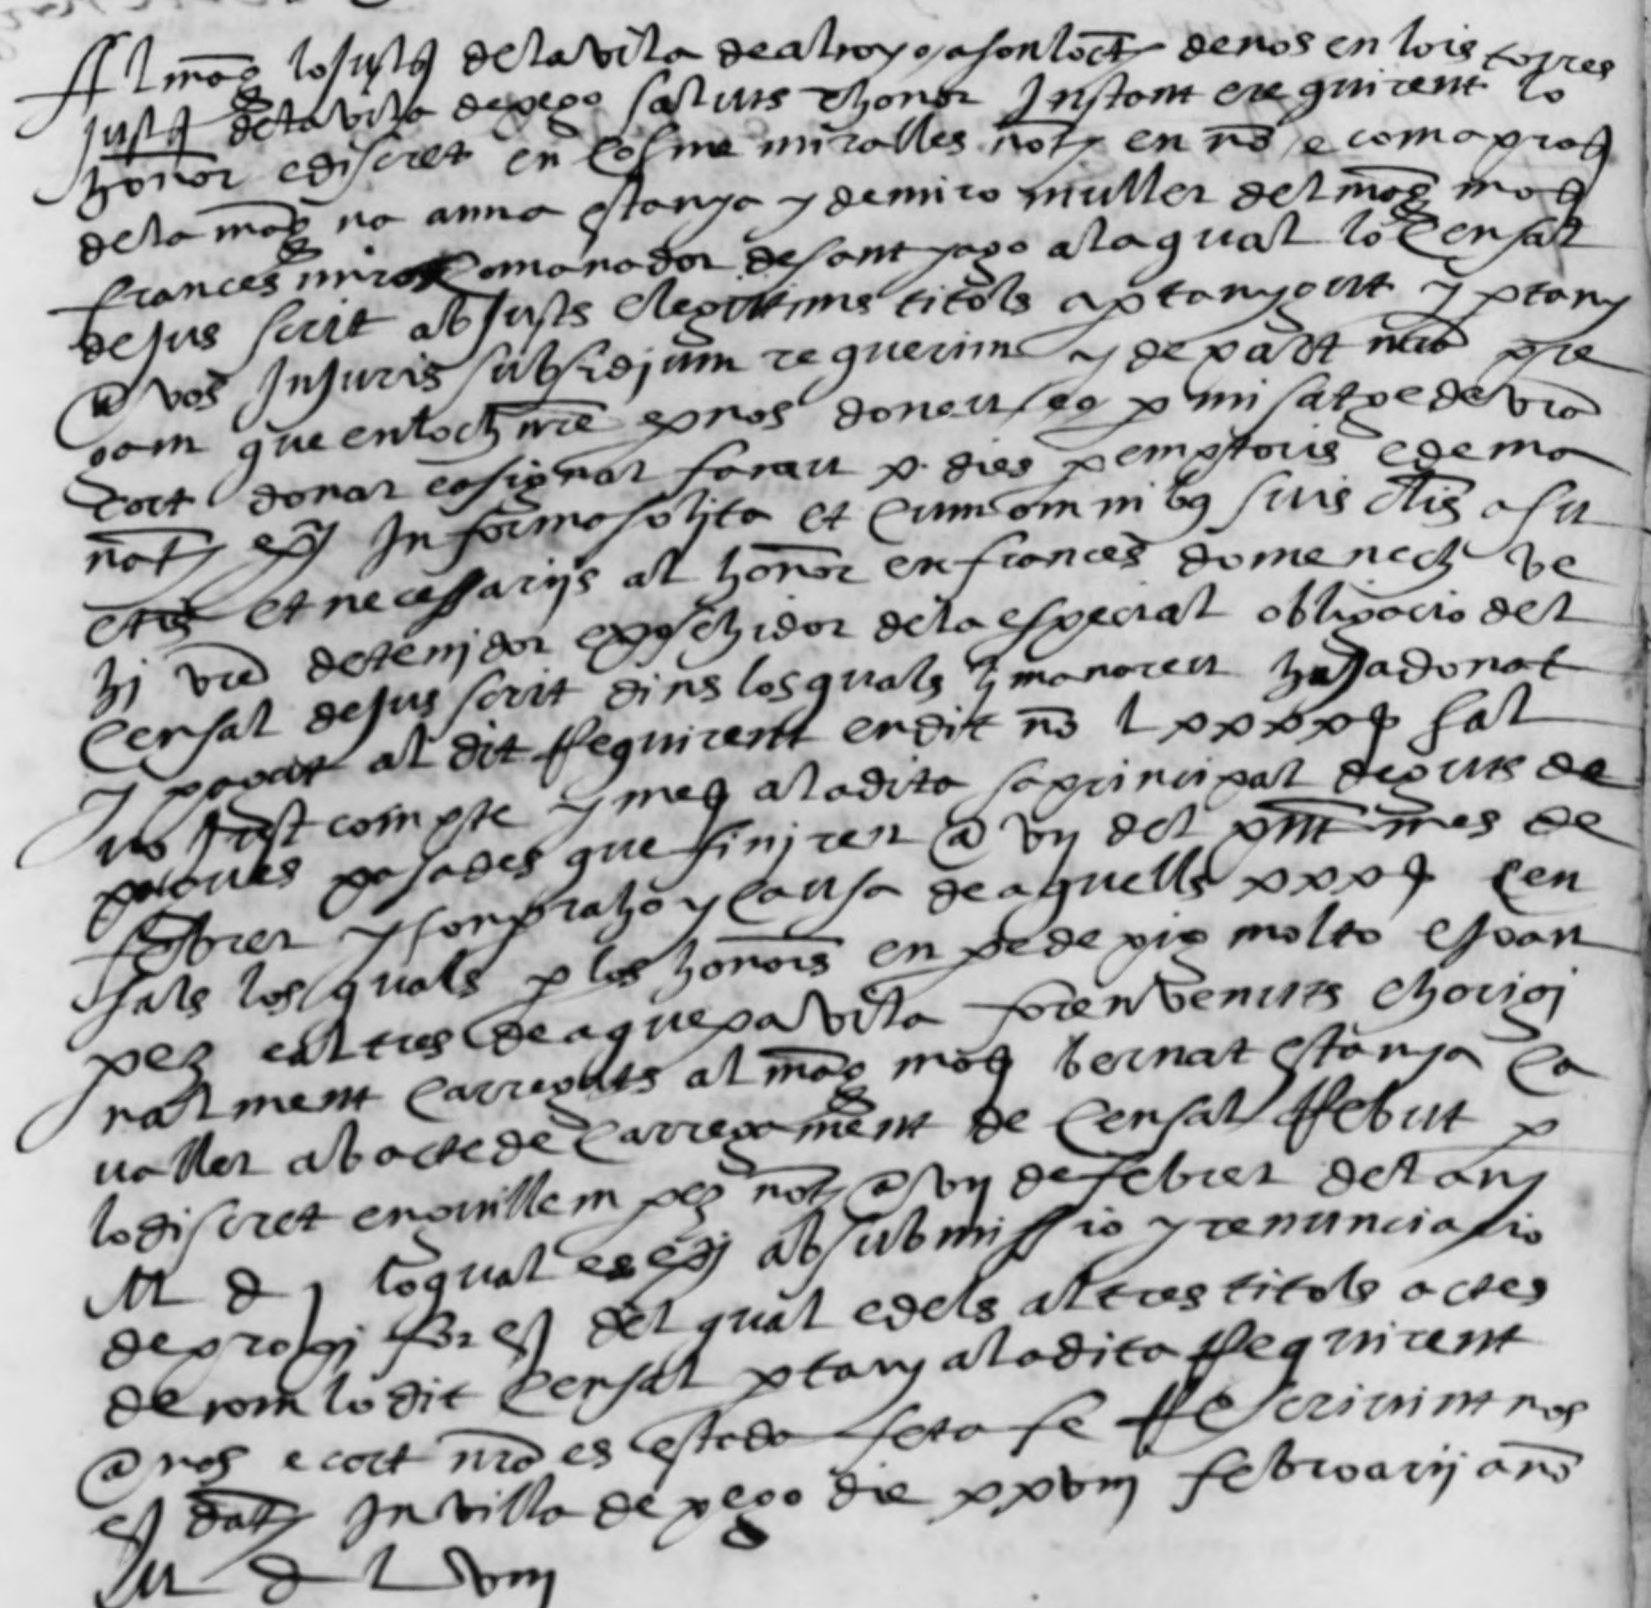 Al mag lo justª de la vila de alcoy o a son locᵗ de nos en lois torres
justª de la vila de pego saluts e honor Instant e requirent lo
honor e discret en Cosme miralles notᵗ en no e com a procᵒʳ
de la magᶜᵃ na anna stanya y de miro muller del mag mos
frances miro Comanador de sant yago a la qual lo Censal
dejus scrit ab justs e legittims titols a ptanygut y ptany
a vos In Juris subsidium requerim y de part nra pre
gam que en loch nre e p nos doneu seg p misatge de vra
cort donar e asignar farau x dies pemptoris e dema
natᵗ In forma solita et cum omnibꝫ suis clis asu
etis et necessarijs al honor en frances domenech ve
hi vre detenjdor e posehidor de la especial obligacio del
Censal dejus scrit dins los quals hi manareu haja donat
y pagat al dit Requirent en dit no L xxxx sal
uo just compte y mes a la dita sa principal deguts de
pagues pasades que finiren a vij del pnt mes de
febrer y son p raho y causa de aquells xxx Cen
sals los quals p los honors en pe de pig molto e Joan
pes e altres de aquexa vila foren venuts e horigi
nalment Carregats al mag mos bernat stanya Ca
ualler ab acte de Carregament de Censal Rebut p
lo discret en guillem pes notᵗ a vij de febrer del any
M D j lo qual es ab submissio y renunciasio
de propi for del qual e dels altres titols actes
de com lo dit Censal ptany a la dita Requirent
a nos e cort nra es estada feta fe Rescriuint nos
datᵗ In villa de pego die xxviij februarij ano
M D L viij